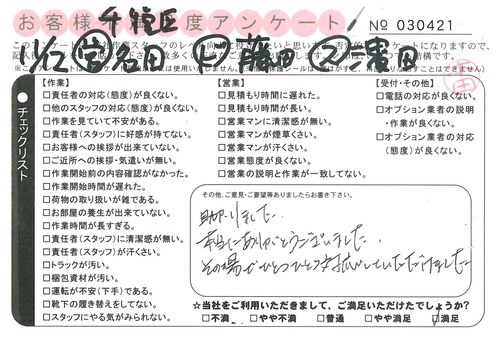 お客様 千種区 度アンケート
No 030421
11/12 営 名田 ド 藤田 ス 豊田
チェックリスト
【作業】
□責任者の対応(態度)が良くない。
□他のスタッフの対応(態度)が良くない。
□作業を見ていて不安がある。
□責任者(スタッフ)に好感が持てない。
□お客様への挨拶が出来ていない。
□ご近所への挨拶・気遣いが無い。
□作業開始前の内容確認がなかった。
□作業開始時間が遅れた。
□荷物の取り扱いが雑である。
□お部屋の養生が出来ていない。
□作業時間が長すぎる。
□責任者(スタッフ)に清潔感が無い。
□責任者(スタッフ)が汗くさい。
□トラックが汚い。
□梱包資材が汚い。
□運転が不安(下手)である。
□靴下の履き替えをしてない。
□スタッフにやる気がみられない。
【営業】
□見積もり時間に遅れた。
□見積もり時間が長い。
□営業マンに清潔感が無い。
□営業マンが煙草くさい。
□営業マンが汗くさい。
□営業態度が良くない。
□営業の説明と作業が一致してない。
【受付・その他】
□電話の対応が良くない。
□オプション業者の説明・作業が良くない。
□オプション業者の対応(態度)が良くない。
その他、ご意見・ご要望等ありましたらお書き下さい。
助かりました。
本当にありがとうございました。
その場でひとつひとつ対応していただけました
☆当社をご利用いただきまして、ご満足いただけたでしょうか?
□不満 □やや不満 □普通 □やや満足 □満足